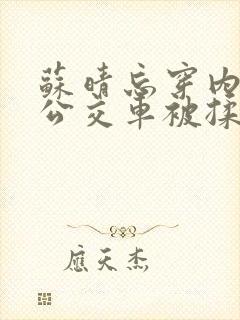 蘇晴忘穿内
公交車被揉
應天杰